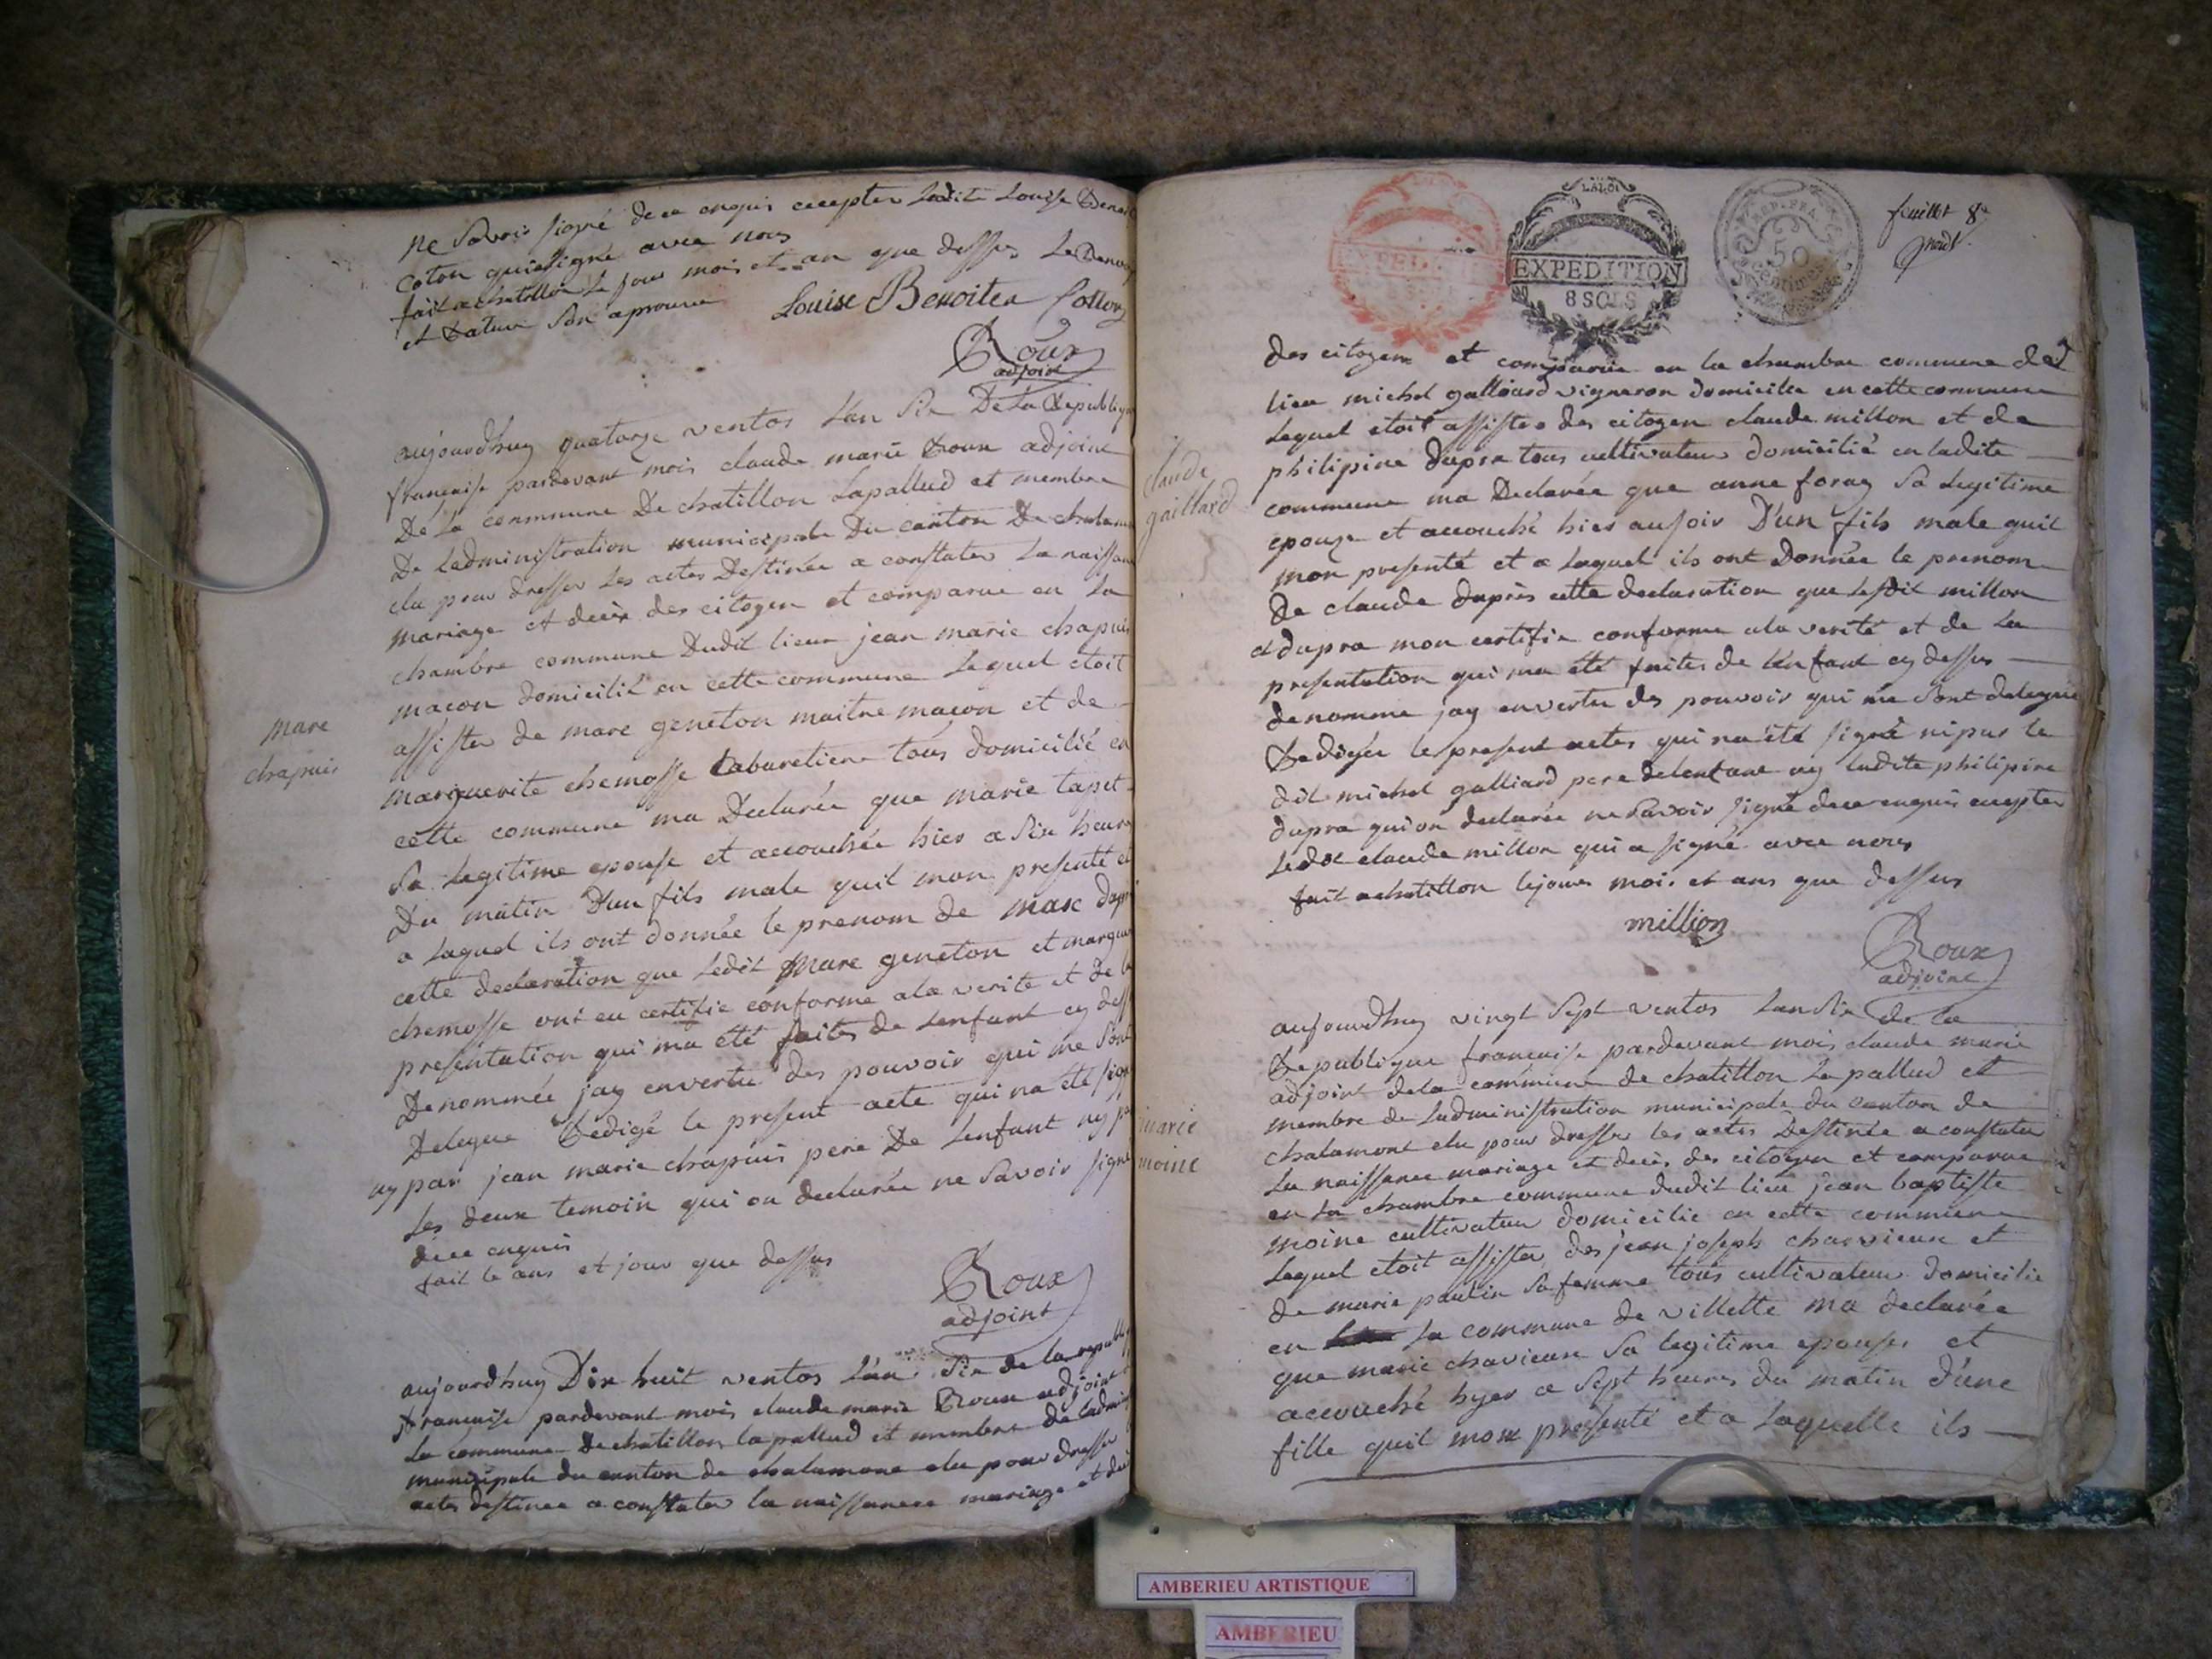 ne Savoir signé de ce enquis excepter Ladite Louise
Coton qui a signé avec nous
fait a chatillon le jour mois et an que dessus
et Rature Son aprouvé
Louise Benoiten Cotton
Roux
adjoint
aujourdhuy quatorze ventos Lan Six De La Republique
francaise pardevant mois claude marie Roux adjoint
De La commune De chatillon Lapallud et membre
De Ladministration municipale Du canton De
elu pour dresser Les actes Destinée a constater La
mariage et decès des citoyen et comparue en La
chambre commune Dudit lieu jean marie chapuis
macon domicilié en cette commune Lequel etoit
assister de marc geneton maitre macon et de
marguerite chemosse Cabaretiere tous domicilié en
cette commune ma Declarée que marie tapet
Sa Legitime epouse et accouchée hier a Six heure
Du matin D'un fils male quil mon presenté et
a Laquel ils ont donnée le prenom de marc
cette declaration que Ledit marc geneton et
chemosse ont eu certifie conforme ala verité et de
presentation qui ma été faites de Lenfant cy
Denommée jay envertu des pouvoir qui me Sont
Delegue Redigé le present acte qui na été
ny par jean marie chapuis pere De Lenfant ny
Les deux temoin qui on declarée ne Savoir signé
dece enquis
fait le ans et jour que dessus
Roux
adjoint
aujourdhuy Dix huit ventos Lan Six de la
francaise pardevant mois claude marie Roux adjoint
La commune De chatillon lapallud et membre de
municipale du canton de chalamont elu pour dresser
actes destinée a constater la naissance mariage et
marc
chapuis
LALOI
EXPEDITION
EXPEDITION
8 SOLS
REP. FRA.
50
Centimes
feuillet 8e
claude
gaillard
des citoyen et comparue en la chambre commune
lieu michel galliard vigneron domicilie en cette commune
Lequel etoit assister des citoyen claude millon et de
philipine dupra tous cultivateur domicilié en ladite
commune ma Declarée que anne foray Sa Legitime
epouze et accouché hier ausoir D'un fils male quil
mon presenté et a Laquel ils ont Donnée le prenom
De claude daprès cette declaration que Ledit millon
et dupra mon certifie conforme ala verité et de La
presentation qui ma été faites de Lenfant cy dessus
denomme jay envertu des pouvoir qui me Sont delegué
Redigée le present actes qui na été signé ni par le
dit michel galliard pere delenfant ny ladite philipine
dupra qui on declarée ne Savoir signé dece enquis excepter
Ledit claude millon qui a signé avec nous
fait achatillon lejour mois et ans que dessus
million
Roux
adjoint
marie
moine
aujourdhuy vingt Sept ventos Lan Six de la
Republique francaise pardevant mois claude marie
adjoint dela commune de chatillon La pallud et
membre de Ladministration municipale du canton de
chalamont elu pour dresser les actes Destinée a constater
La naissance mariage et decès des citoyen et comparue
en La chambre commune dudit lieu jean baptiste
moine cultivateur domicilie en cette commune
Lequel etoit assister des jean joseph charvieux et
de marie paulin Sa femme tous cultivateur domicilie
en La commune de villette ma declarée
que marie chavieux Sa legitime epouses et
accouché hyer a Sept heures du matin d'une
fille quil mon presenté et a Laquelle ils
AMBERIEU ARTISTIQUE
AMBERIEU